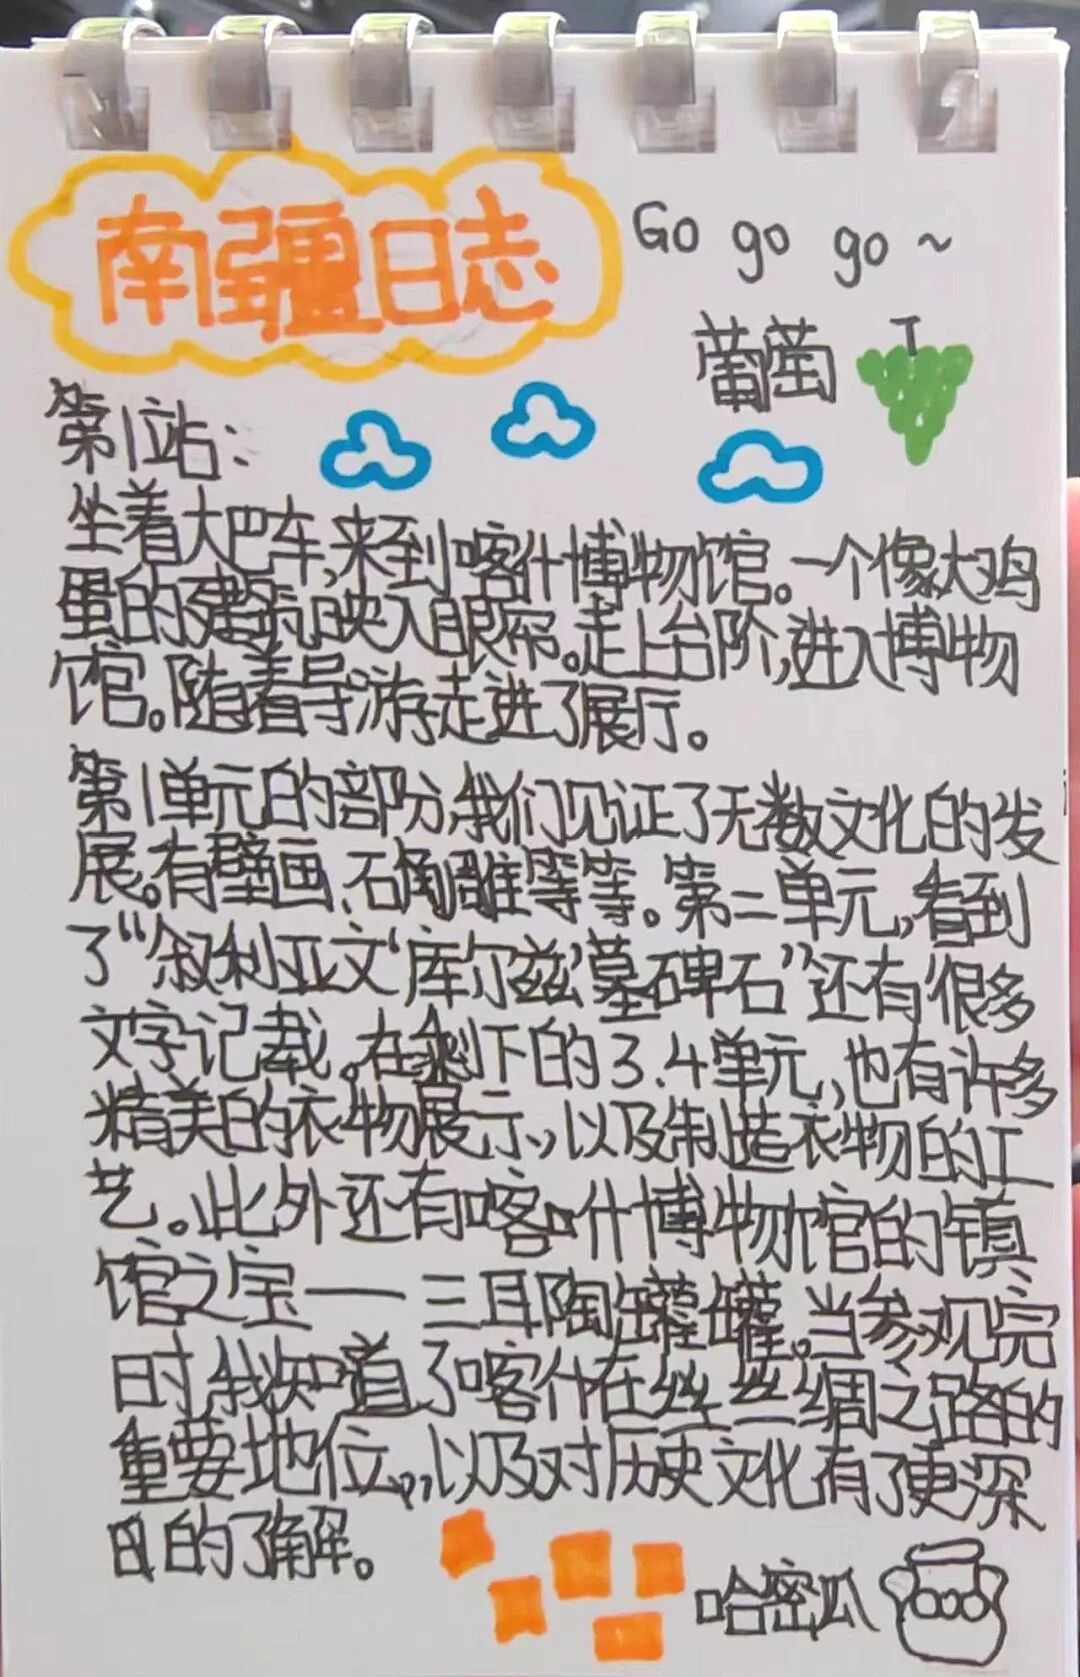 南疆日志
Go go go ~
葡萄
第1站：
坐着大巴车,来到喀什博物馆。一个像大鸡
蛋的建筑映入眼帘。走上台阶,进入博物
馆。随着导游走进了展厅。
第1单元的部份,我们见证了无数文化的发
展。有壁画、石角雕等等。第二单元,看到
了“叙利亚文‘库尔兹’墓碑石”还有很多
文字记载。在剩下的3.4单元,也有许多
精美的衣物展示,以及制造衣物的工
艺。此外还有喀什博物馆的镇
馆之宝——三耳陶罐罐。当参观完
时,我知道了喀什在丝丝绸之路的
重要地位,,以及对历史文化有了更深
的了解。
哈密瓜